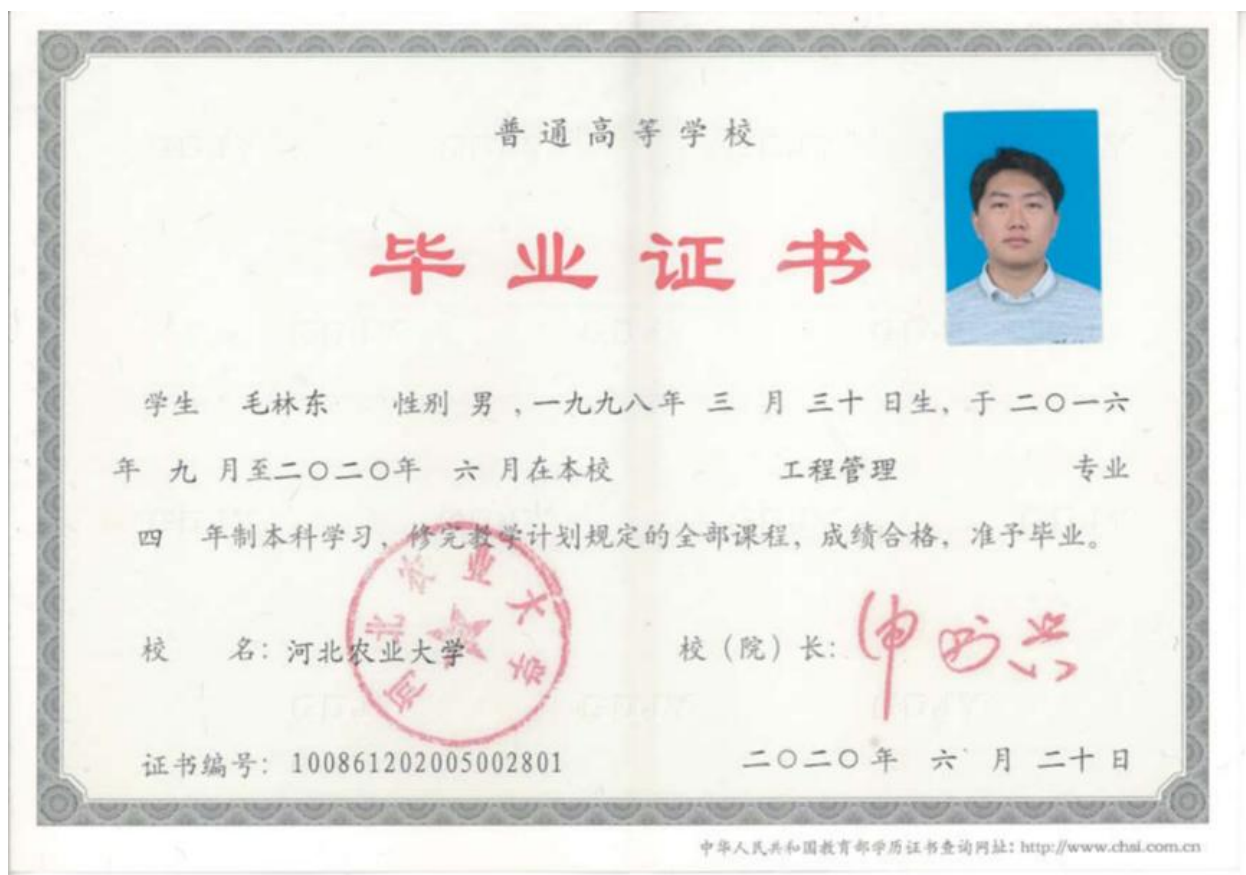 普通高等学校
毕业证书
学生 毛林东 性别 男 ,一九九八年 三 月 三十 日生, 于 二〇一六
年 九 月至二〇二〇年 六 月在本校 工程管理 专业
四 年制本科学习, 修完教学计划规定的全部课程, 成绩合格, 准予毕业。
河北农业大学
校 名: 河北农业大学 校 (院) 长: 申书兴
证书编号: 100861202005002801 二〇二〇年 六 月 二十 日
中华人民共和国教育部学历证书查询网址: http://www.chsi.com.cn